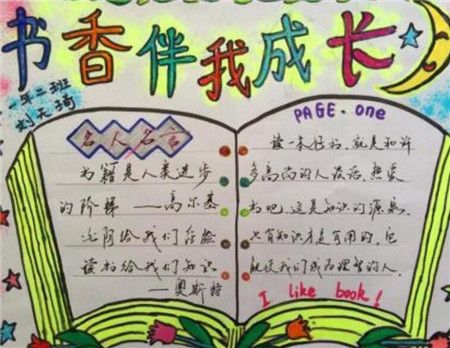 书香伴我成长
一年二班
刘天琦
名人名言
书籍是人类进步
的阶梯——高尔基
给我们经验
读书给我们知识
——奥斯特
PAGE.one
读一本好书,就是和许
多高尚的人谈话,热爱
书吧,这是知识的源泉.
只有知识才是有用的,它
能使我们成为理智的人.
I like book!